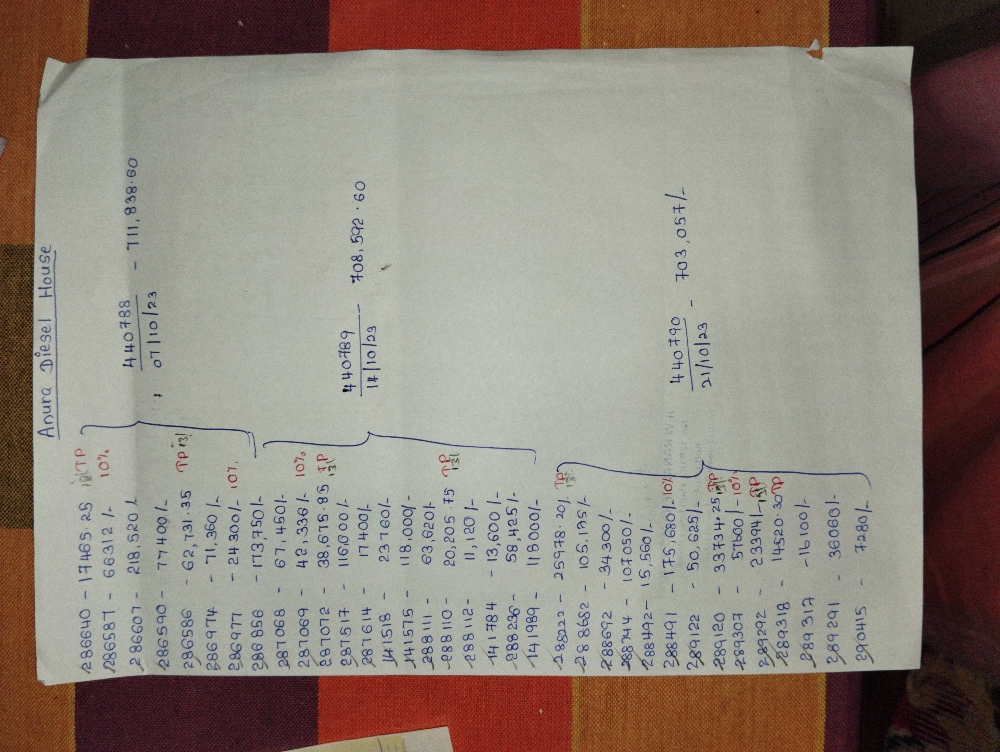 Anura Diesel House
286640 - 17465.25 131 TP
286587 - 66312/- 10%
286607 - 218,520/-
286590 - 77400/-
286586 - 62,731.35 TP 131
286974 - 71,360/-
286977 - 24300/- 10%
286856 - 173750/-
440788 - 711,838.60
07/10/23
287068 - 67,450/-
287069 - 42,336/- 10%
287072 - 38,675.85 TP 131
287517 - 116,000/-
287614 - 17400/-
141518 - 23760/-
141575 - 118,000/-
288111 - 63,620/-
288110 - 20,205.75 TP 131
288112 - 11,120/-
141784 - 13,600/-
288236 - 58,425/-
141989 - 118000/-
440789 - 708,592.60
14/10/23
288222 - 25978.20/- TP 131
288682 - 105,175/-
288692 - 34300/-
288744 - 107050/-
288492 - 15,560/-
288491 - 175,680/- 10%
289122 - 50,625/-
289120 - 33734.25 TP 131
289307 - 57600/- 10%
289292 - 23394/- TP 131
289318 - 14520.30 TP
289317 - 16100/-
289291 - 36060/-
290415 - 7280/-
440790 - 703,057/-
21/10/23